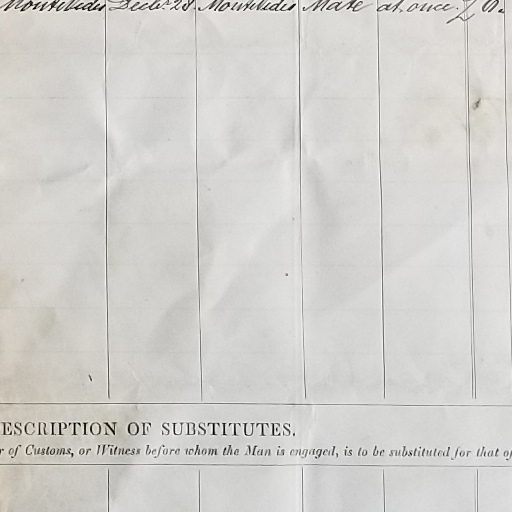 Montevideo Decbr. 28. Montevideo Mate at once. £
ESCRIPTION OF SUBSTITUTES.
r of Customs, or Witness before whom the Man is engaged, is to be substituted for that of